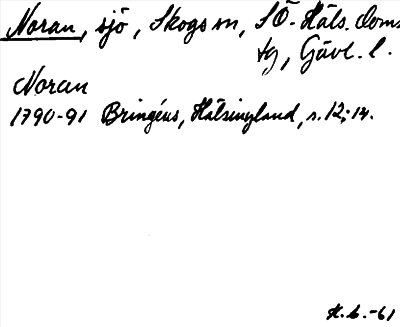 Noran, sjö, Skogs sn, SÖ. Häls. doms.
tg, Gävl. l.
Noran
1790-91 Bringéus, Hälsingland, s. 12; 14.
H.b.-61